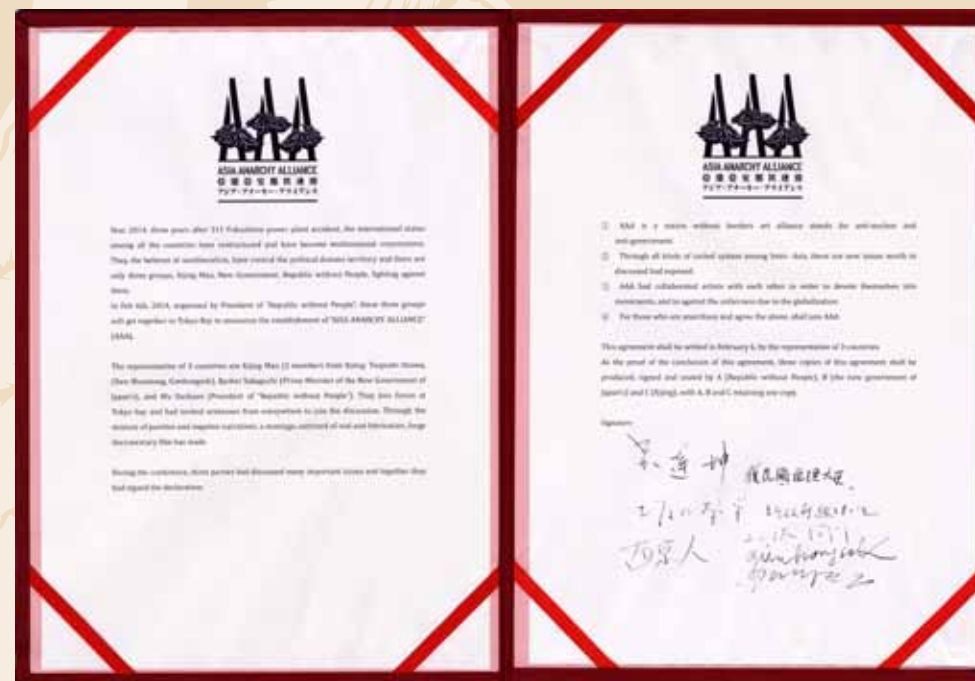 ASIA ANARCHY ALLIANCE
アジア・アナーキー・アライアンス
Year 2014, three years after 311 Fukushima power plant accident, the international states
among all the countries have restructured and have become multinational corporations.
They, the believer of neoliberalism, have control the political domain territory and there are
only three groups, Xijing Man, New Government, Republic without People, fighting against
them.
In Feb 6th, 2014, organized by President of "Republic without People", these three groups
will get together in Tokyo Bay to announce the establishment of "ASIA ANARCHY ALLIANCE"
(AAA).
The representative of 3 countries are Xijing Man (3 members from Xijing: Tsuyoshi Ozawa,
Chen Shaoxiong, Gimhongsok), Kyohei Sakaguchi (Prime Minister of the New Government of
Japan), and Wu Darkuen (President of "Republic without People"). They join forum at
Tokyo bay and had invited witnesses from everywhere to join the discussion. Through the
mixture of positive and negative narratives, a montage, outlined of real and fabrication, forge
documentary film has made.
During the conference, three parties had discussed many important issues and together they
had signed the declaration.
ASIA ANARCHY ALLIANCE
アジア・アナーキー・アライアンス
① AAA is a nation without borders art alliance stands for anti-nuclear and
anti-government.
② Through all kinds of varied system among Inter- Asia, there are new issues worth to
discussed and exposed.
③ AAA had collaborated artists with each other in order to devote themselves into
movements, and to against the unfairness due to the globalization.
④ For those who are anarchism and agree the above, shall join AAA.
This agreement shall be settled in February 6, by the representative of 3 countries.
As the proof of the conclusion of this agreement, three copies of this agreement shall be
produced, signed and sealed by A (Republic without People), B (the new government of
Japan) and C (Xijing), with A, B and C retaining one copy.
Signature:
西京人